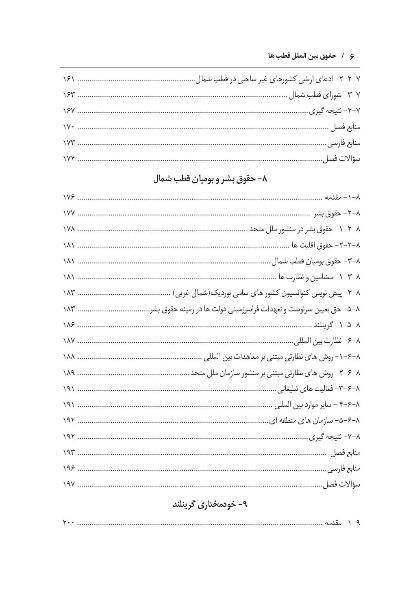 ۶ / حقوق بین الملل قطب ها
۷-۲-۲- ادعای ارضی کشورهای غیر ساحلی در قطب شمال ........ ۱۶۱
۷-۳- شورای قطب شمال ........ ۱۶۳
۷-۴- نتیجه گیری ........ ۱۶۷
منابع فصل ........ ۱۷۰
منابع فارسی ........ ۱۷۳
سؤالات فصل ........ ۱۷۴
۸- حقوق بشر و بومیان قطب شمال
۸-۱- مقدمه ........ ۱۷۶
۸-۲- حقوق بشر ........ ۱۷۷
۸-۲-۱- حقوق بشر در منشور ملل متحد ........ ۱۷۸
۸-۲-۲- حقوق اقلیت ها ........ ۱۸۱
۸-۳- حقوق بومیان قطب شمال ........ ۱۸۱
۸-۳-۱- مضامین و نظارت ها ........ ۱۸۱
۸-۴- پیش نویس کنوانسیون کشور های سامی نوردیک(شمال غربی) ........ ۱۸۳
۸-۵- حق تعیین سرنوشت و تعهدات فراسرزمینی دولت ها در زمینه حقوق بشر ........ ۱۸۳
۸-۵-۱- گرینلند ........ ۱۸۶
۸-۶- نظارت بین المللی ........ ۱۸۷
۸-۶-۱- روش های نظارتی مبتنی بر معاهدات بین المللی ........ ۱۸۸
۸-۶-۲- روش های نظارتی مبتنی بر منشور سازمان ملل متحد ........ ۱۸۹
۸-۶-۳- فعالیت های تبلیغاتی ........ ۱۹۱
۸-۶-۴- سایر موارد بین المللی ........ ۱۹۱
۸-۶-۵- سازمان های منطقه ای ........ ۱۹۲
۸-۷- نتیجه گیری ........ ۱۹۲
منابع فصل ........ ۱۹۳
منابع فارسی ........ ۱۹۶
سؤالات فصل ........ ۱۹۷
۹- خودمختاری گرینلند
۹-۱- مقدمه ........ ۲۰۰